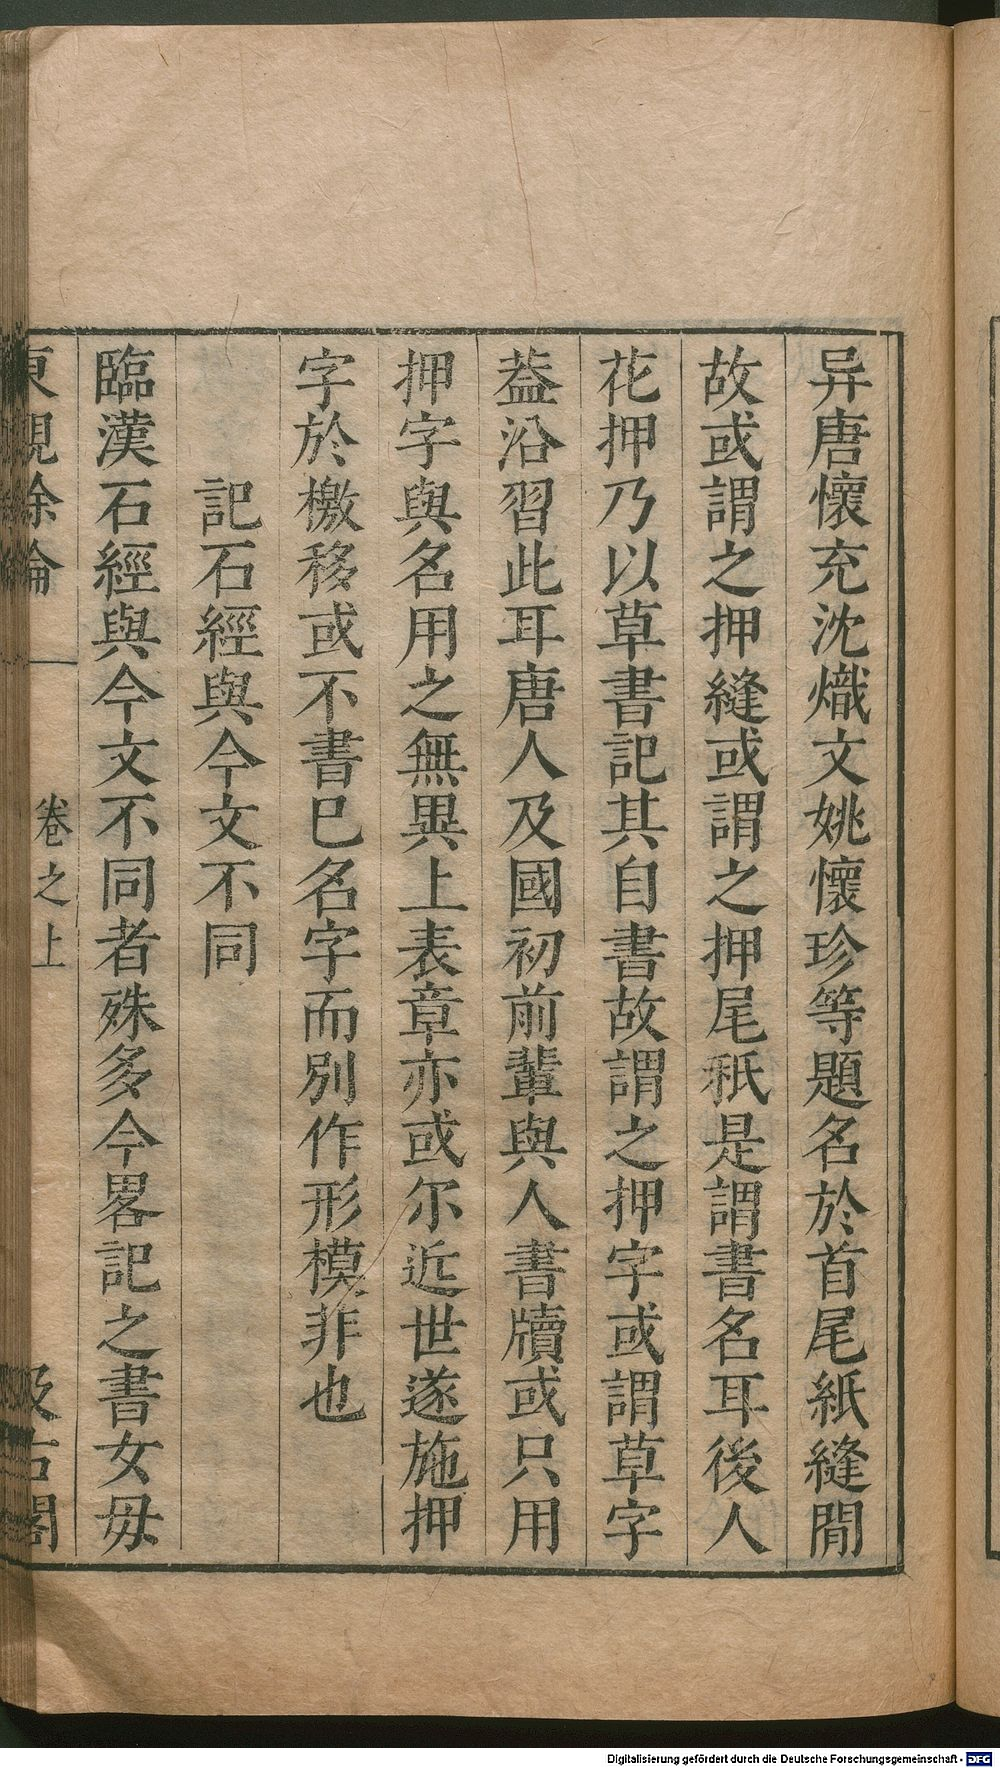 异唐懷充沈熾文姚懷珍等題名於首尾紙縫閒
故或謂之押縫或謂之押尾秖是謂書名耳後人
花押乃以草書記其自書故謂之押字或謂草字
葢沿習此耳唐人及國初前輩與人書牘或只用
押字與名用之無異上表章亦或尔近世遂施押
字於檄移或不書巳名字而別作形模非也
記石經與今文不同
臨漢石經與今文不同者殊多今畧記之書女毋
東觀餘論
卷之上
汲古閣
Digitalisierung gefördert durch die Deutsche Forschungsgemeinschaft - DFG